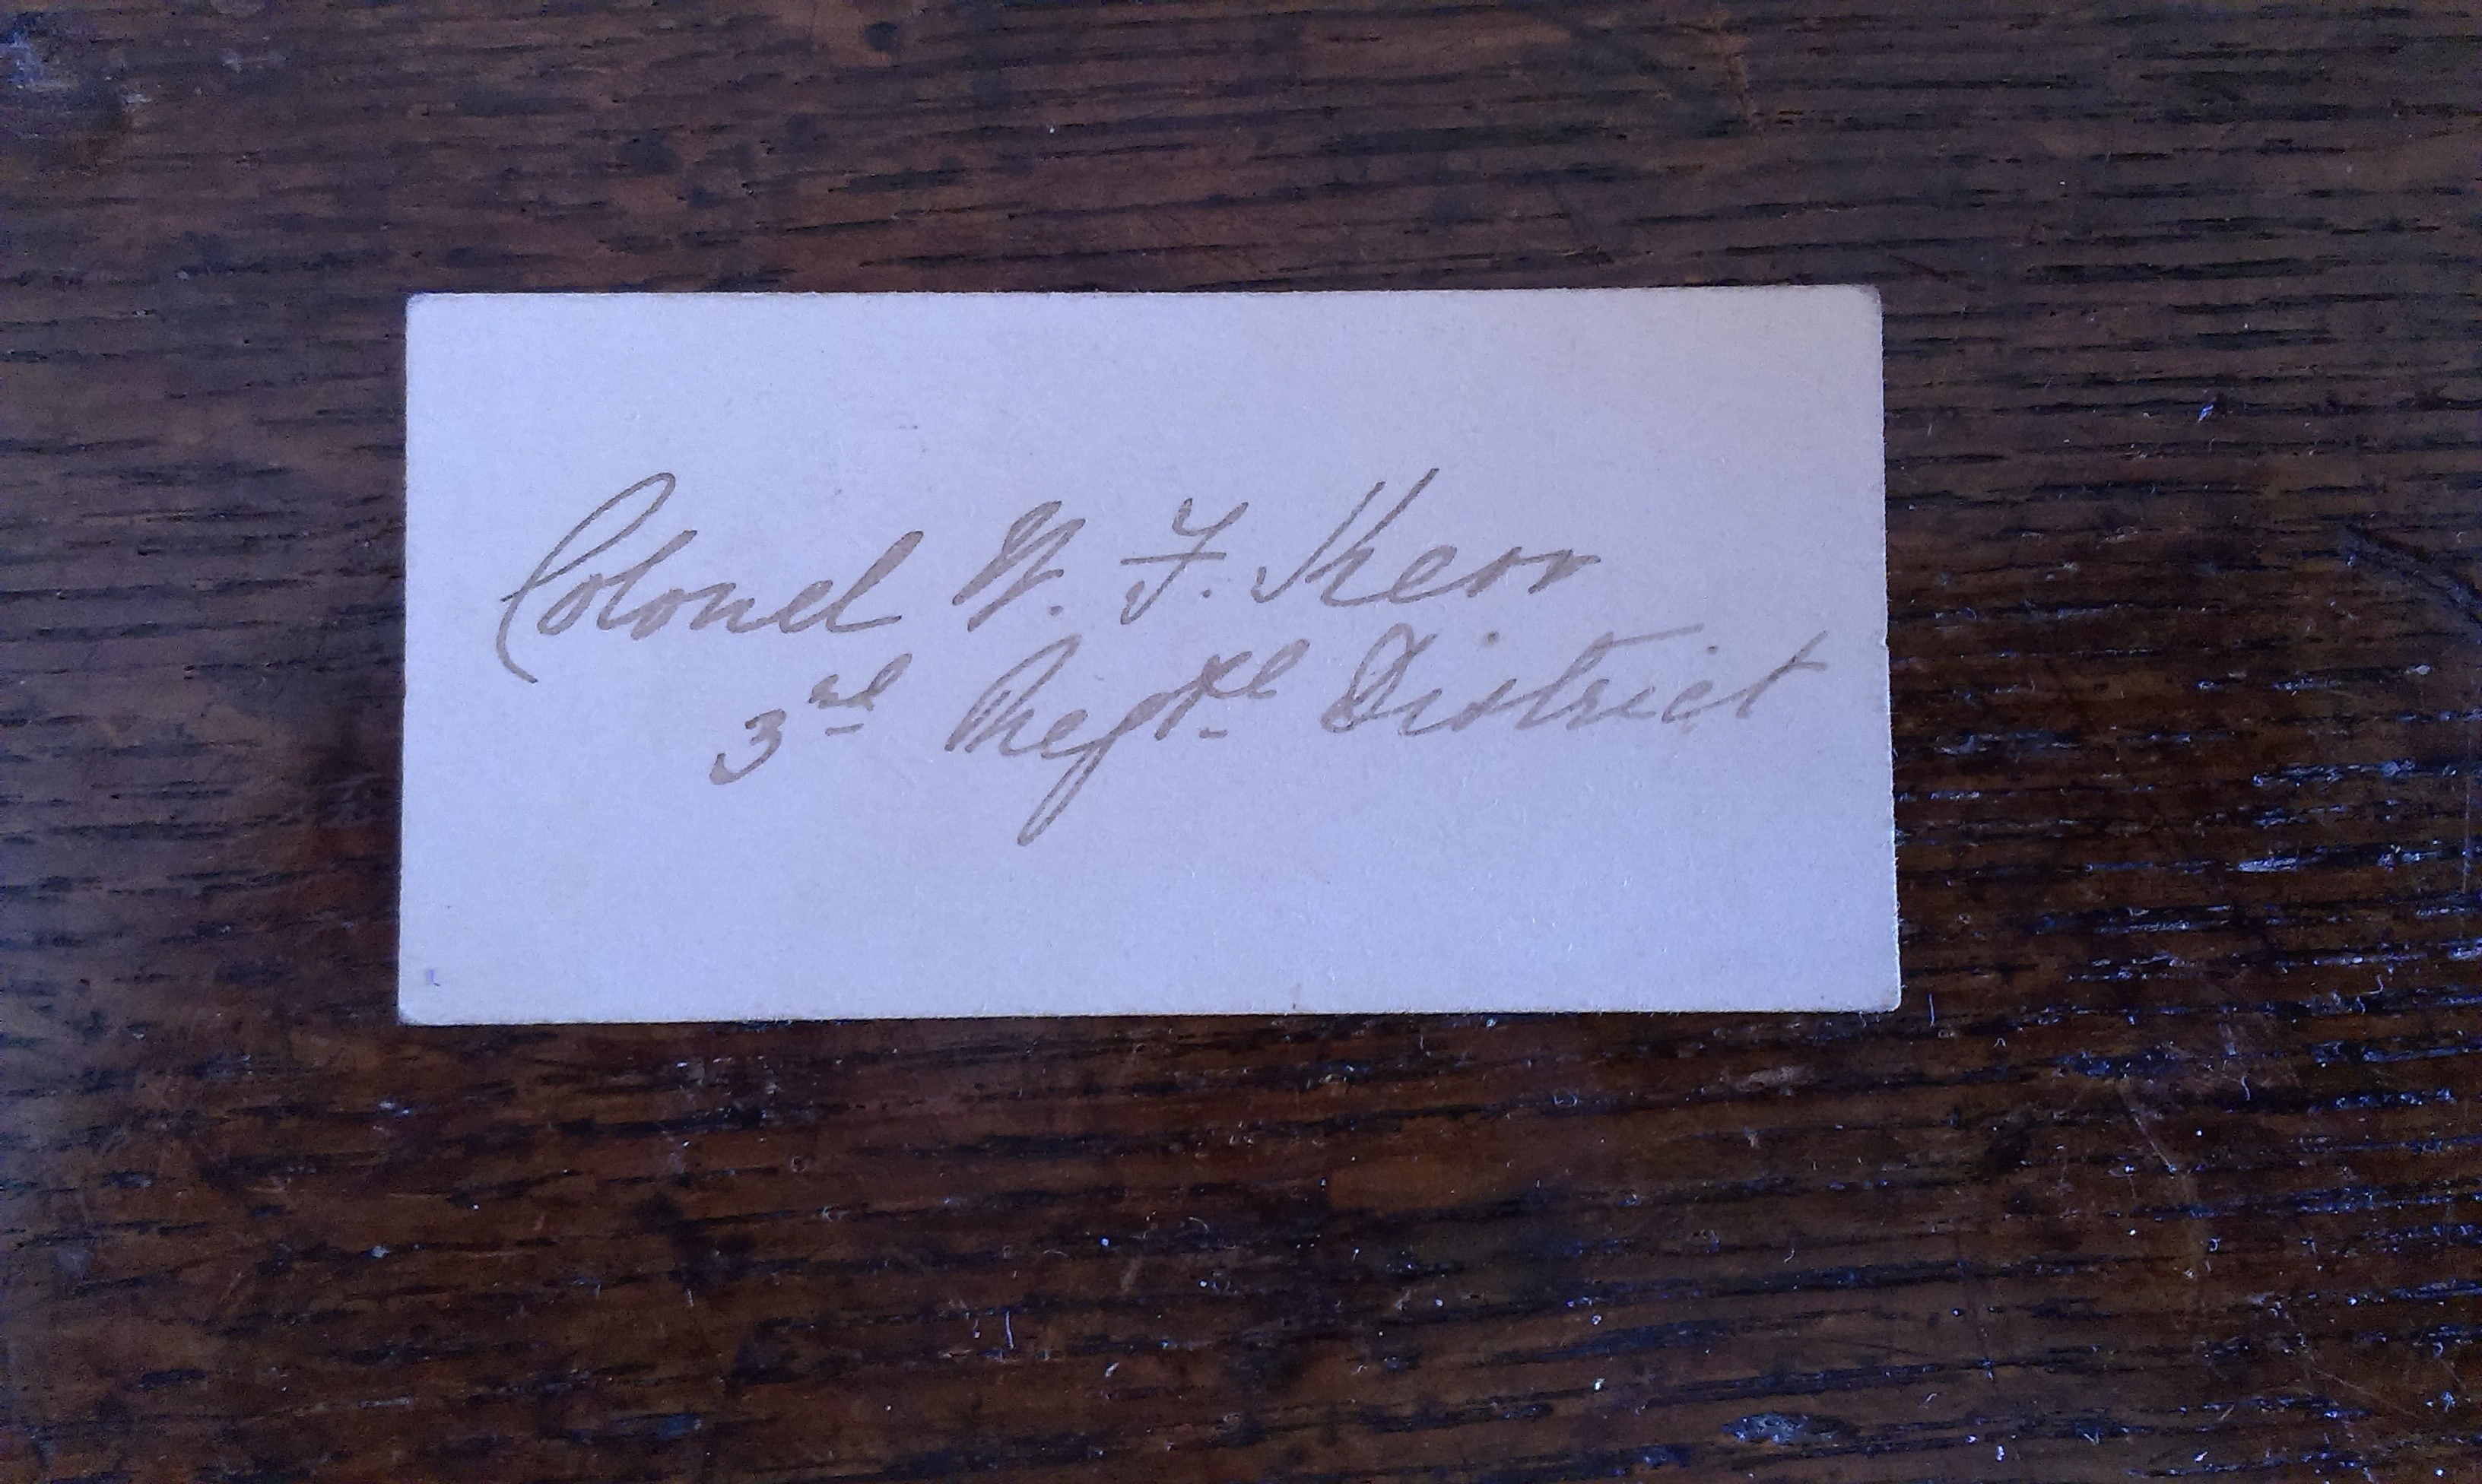 Colonel F. Kerr
3rd Regtl District